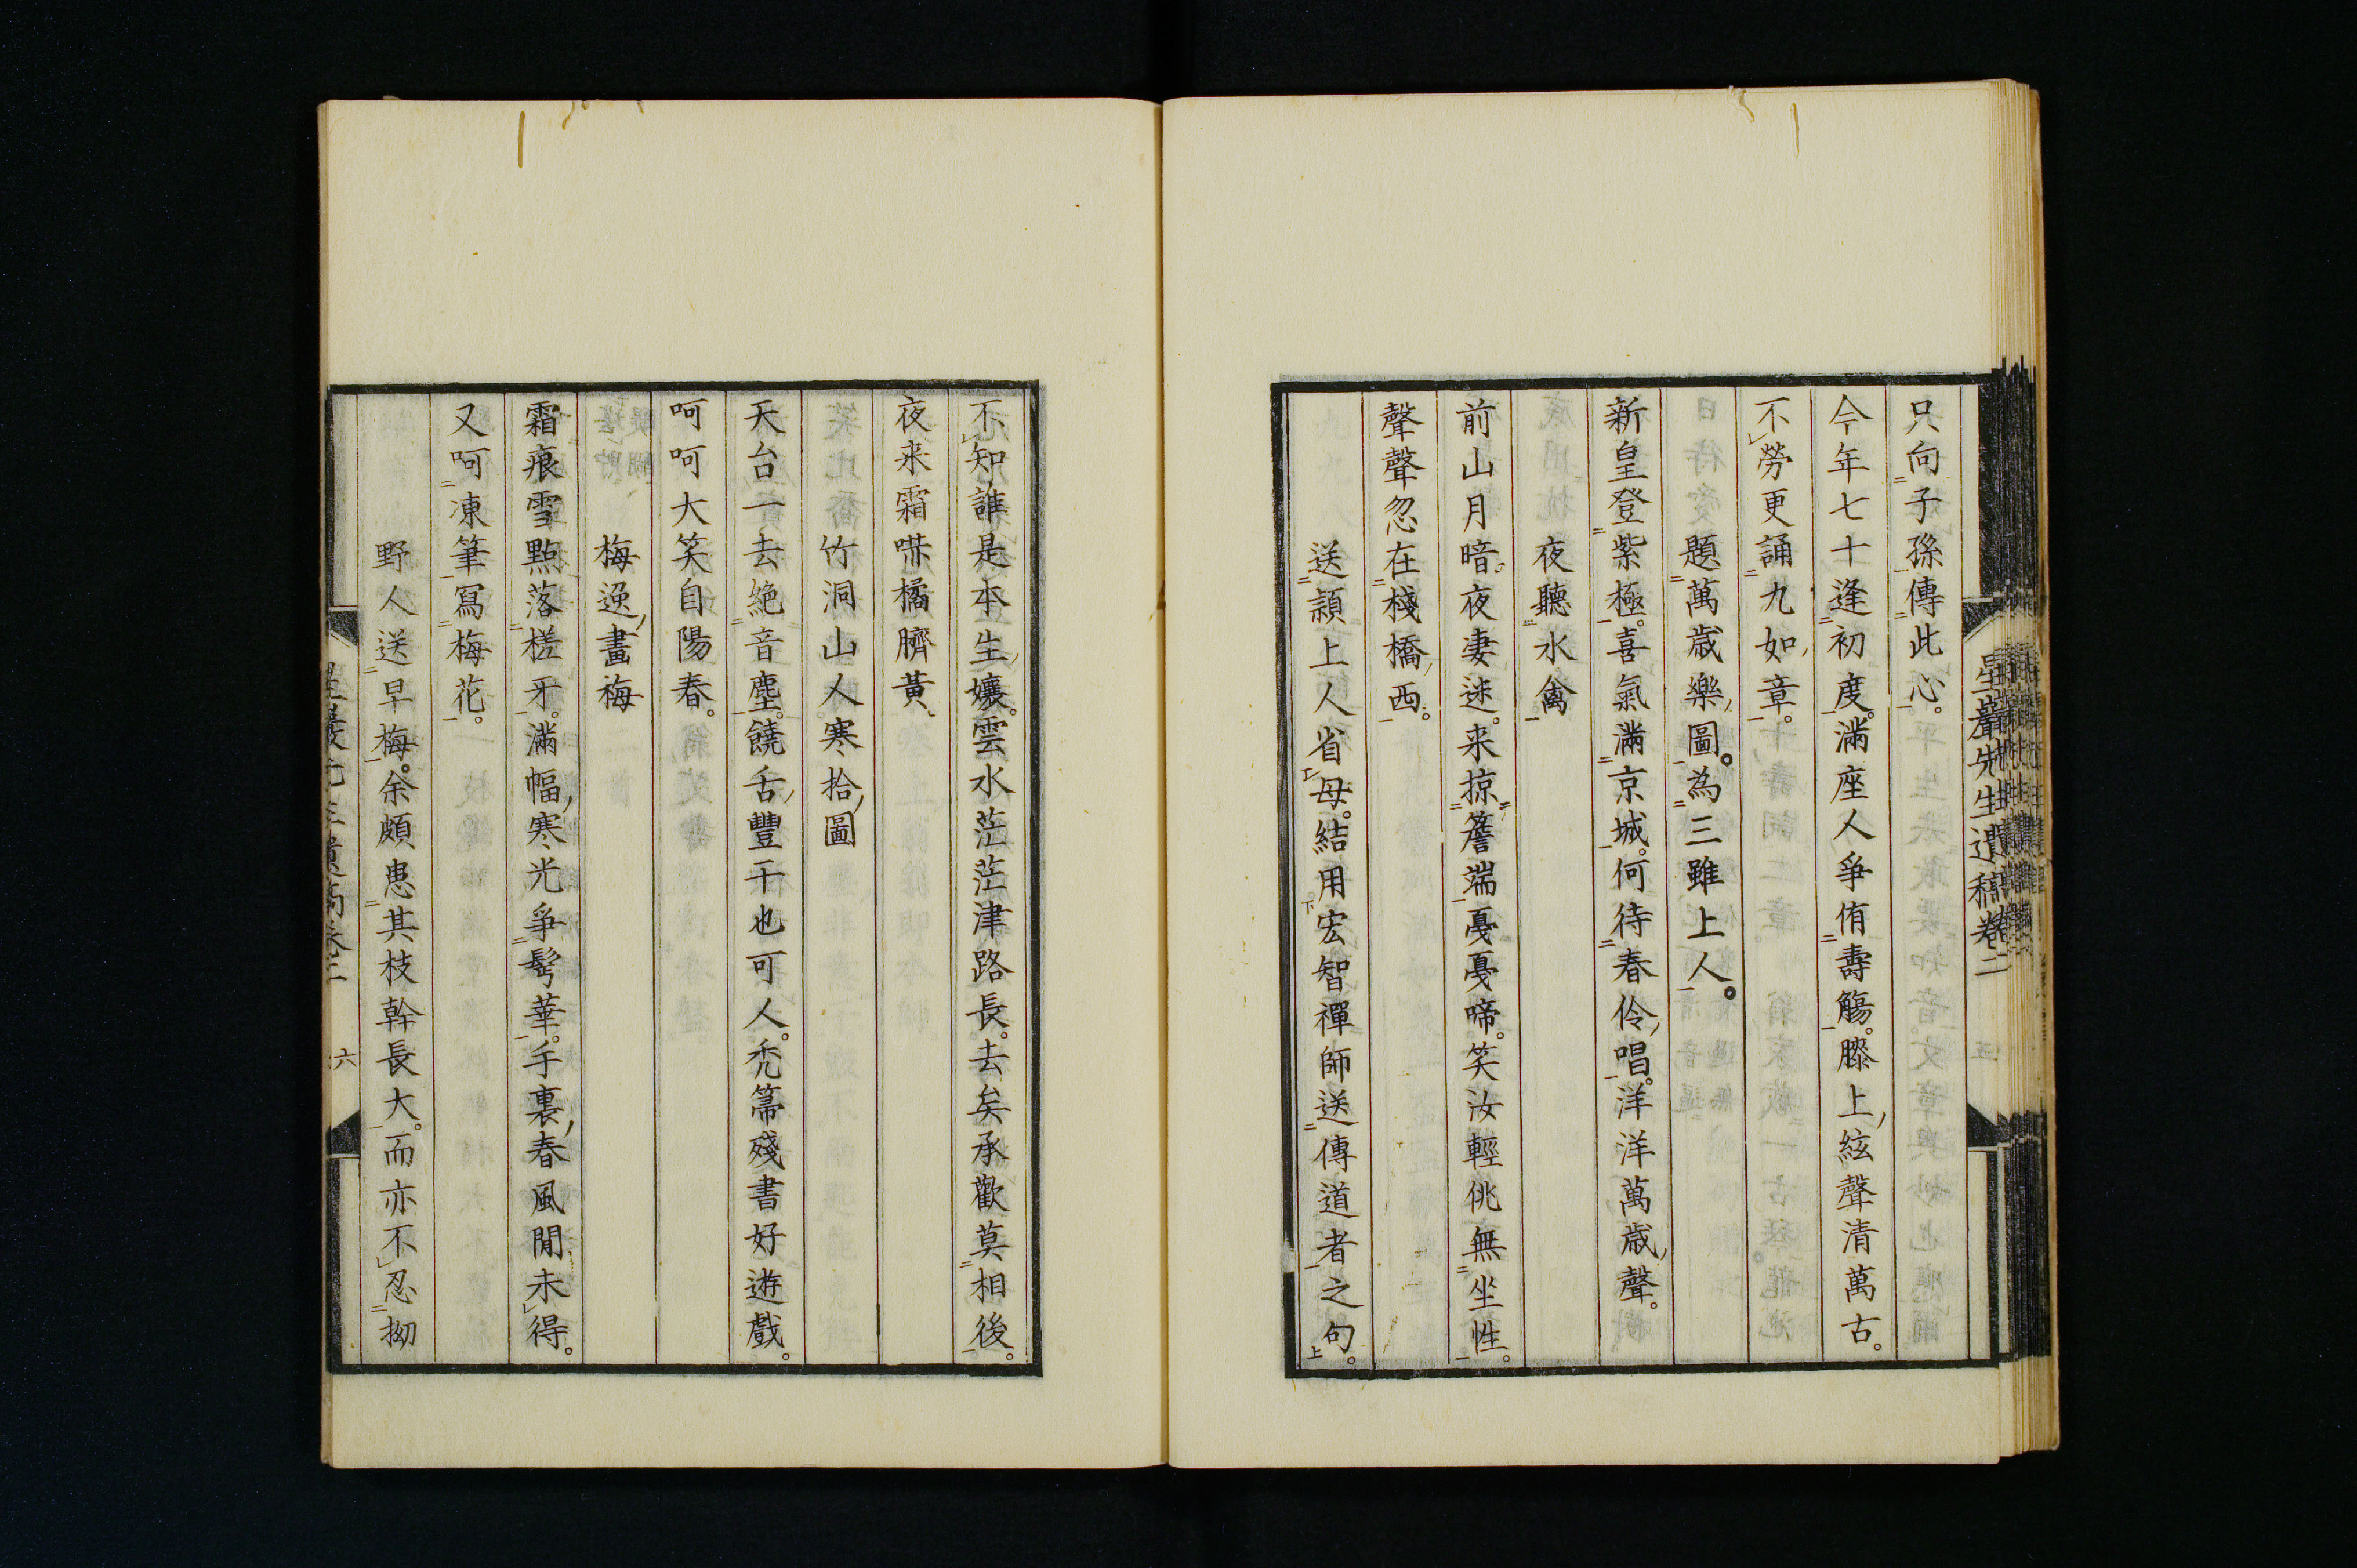 星巖先生遺稿卷二
只向子孫傳此心。
今年七十逢初度。滿座人爭侑壽觴。膝上絃聲清萬古。
不勞更誦九如章。
題萬歲樂圖。為三雖上人。
新皇登紫極。喜氣滿京城。何待春伶唱。洋洋萬歲聲。
夜聽水禽
前山月暗夜淒迷。来掠簷端戞戞啼。笑汝輕佻無坐性。
聲聲忽在棧橋西。
送頴上人省母。結用宏智禪師送傳道者之句。
不知誰是本生孃。雲水茫茫津路長。去矣承歡莫相後。
夜来霜喍橘臍黃
竹洞山人寒拾圖
天台一去絶音塵。饒舌豐干也可人。禿箒殘書好遊戲。
呵呵大笑自陽春。
梅逸畫梅
霜痕雪點落槎牙。滿幅寒光爭髩華。手裏春風閒未得。
又呵凍筆寫梅花。
野人送早梅。余頗患其枝幹長大。而亦不忍拗
六